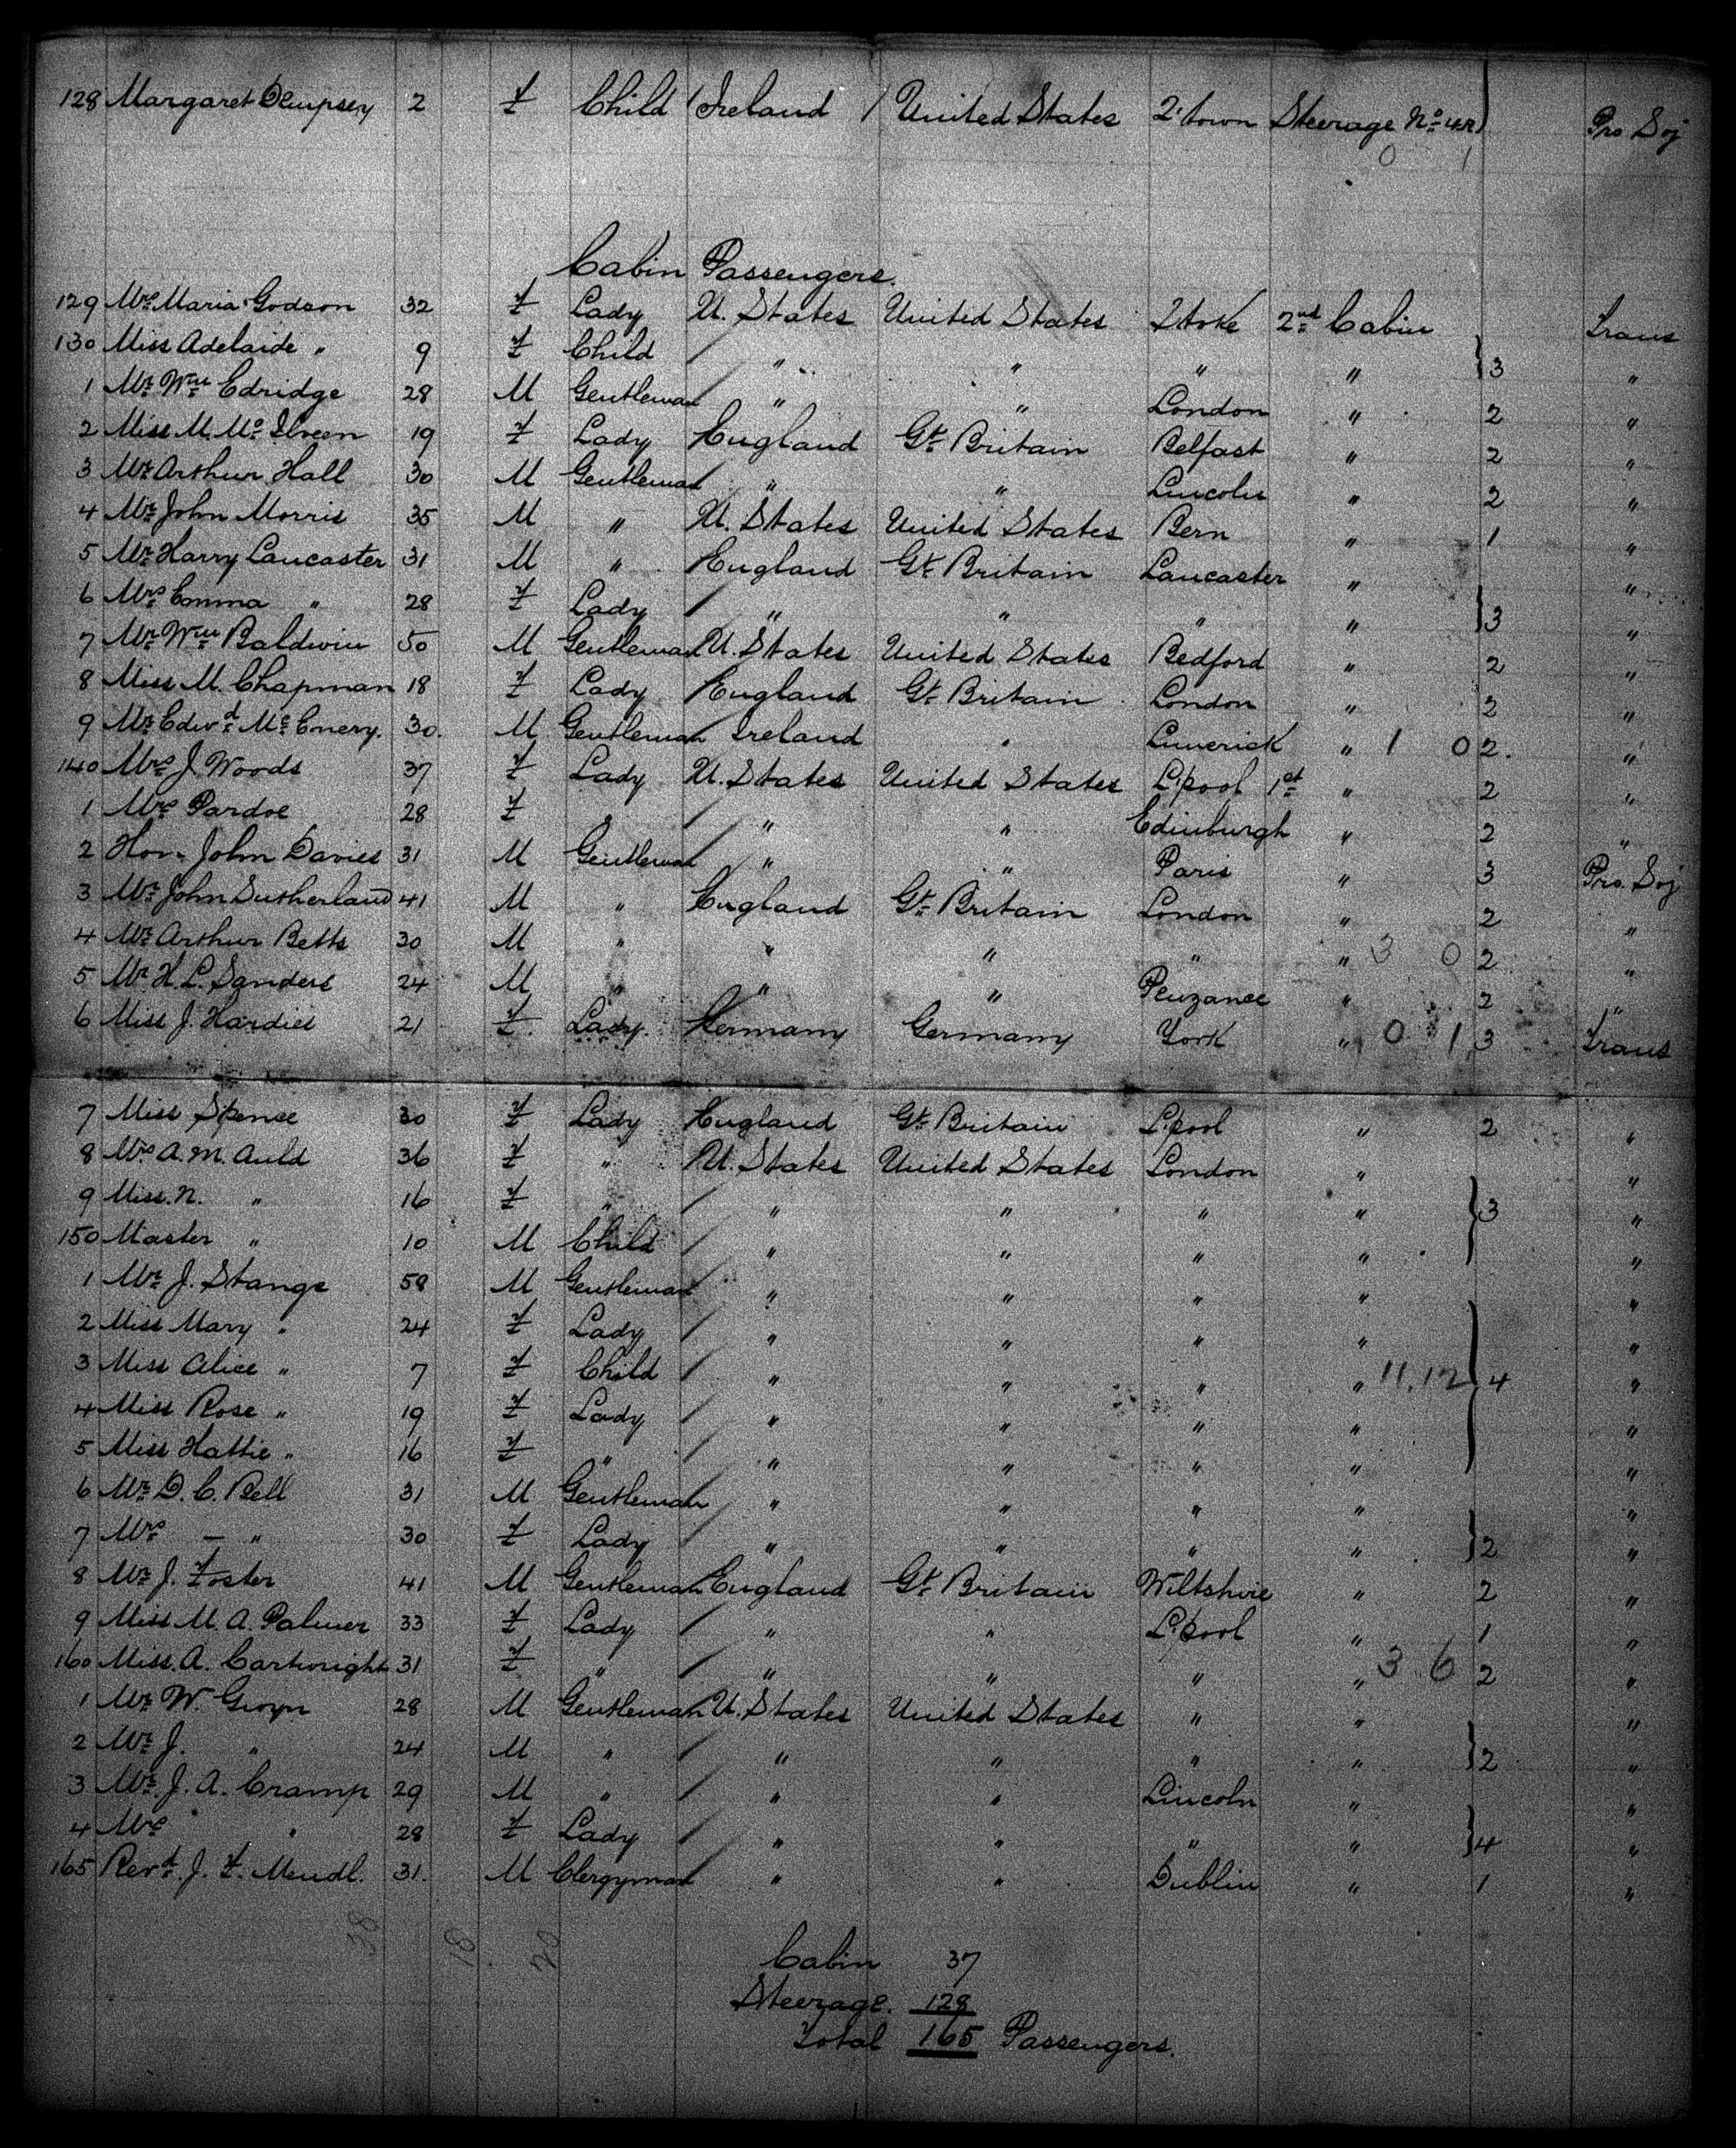 128 Margaret Dempsey 2 F Child Ireland United States Q'town Steerage No 4R Pro Soj
0 1
Cabin Passengers.
129 Mrs Maria Godson 32 F Lady U. States United States Stoke 2nd Cabin Trans
130 Miss Adelaide " 9 F Child " " " " } 3 "
1 Mr Wm Edridge 28 M Gentleman " " London " 2 "
2 Miss M. Mc Ilveen 19 F Lady England Gt Britain Belfast " 2 "
3 Mr Arthur Hall 30 M Gentleman " " Lincoln " 2 "
4 Mr John Morris 35 M " U. States United States Bern " 1 "
5 Mr Harry Lancaster 31 M " England Gt Britain Lancaster " "
6 Mrs Emma " 28 F Lady " " " " } 3 "
7 Mr Wm Baldwin 50 M Gentleman U. States United States Bedford " 2 "
8 Miss M. Chapman 18 F Lady England Gt Britain London " 2 "
9 Mr Edwd Mc Enery. 30. M Gentleman Ireland " Limerick " 1 0 2. "
140 Mrs J. Woods 37 F Lady U. States United States L'pool 1st " 2 "
1 Mrs Pardoe 28 F " " " Edinburgh " 2 "
2 Hon. John Davies 31 M Gentleman " " Paris " 3 Pro. Soj
3 Mr John Sutherland 41 M " England Gt Britain London " 2 "
4 Mr Arthur Betts 30 M " " " " " 3 0 2 "
5 Mr H. L. Sanders 24 M " " " Penzance " 2 "
6 Miss J. Hardies 21 F. Lady. Germany Germany York " 0 1 3 Trans
7 Miss Spence 30 F Lady England Gt Britain L'pool " 2 "
8 Mrs A. M. Auld 36 F " U. States United States London " "
9 Miss. N. " 16 F " " " " " } 3 "
150 Master " 10 M Child " " " " "
1 Mr J. Stange 58 M Gentleman " " " " "
2 Miss Mary " 24 F Lady " " " " "
3 Miss Alice " 7 F Child " " " " 11.12 } 4 "
4 Miss Rose " 19 F Lady " " " " "
5 Miss Hattie " 16 F " " " " " "
6 Mr D. C. Bell 31 M Gentleman " " " " "
7 Mrs — " 30 F Lady " " " " } 2 "
8 Mr J. Foster 41 M Gentleman England Gt Britain Wiltshire " 2 "
9 Miss M. A. Palmer 33 F Lady " " L'pool " 1 "
160 Miss. A. Cartwright 31 F " " " " " 3 6 2 "
1 Mr W. Gwyn 28 M Gentleman U. States United States " " "
2 Mr J. " 24 M " " " " " } 2 "
3 Mr J. A. Cramp 29 M " " " Lincoln " "
4 Mrs " 28 F Lady " " " " } 4 "
165 Revd. J. F. Mendl. 31. M Clergyman " " Dublin " 1 "
38 18 20
Cabin 37
Steerage. 128
Total 165 Passengers.